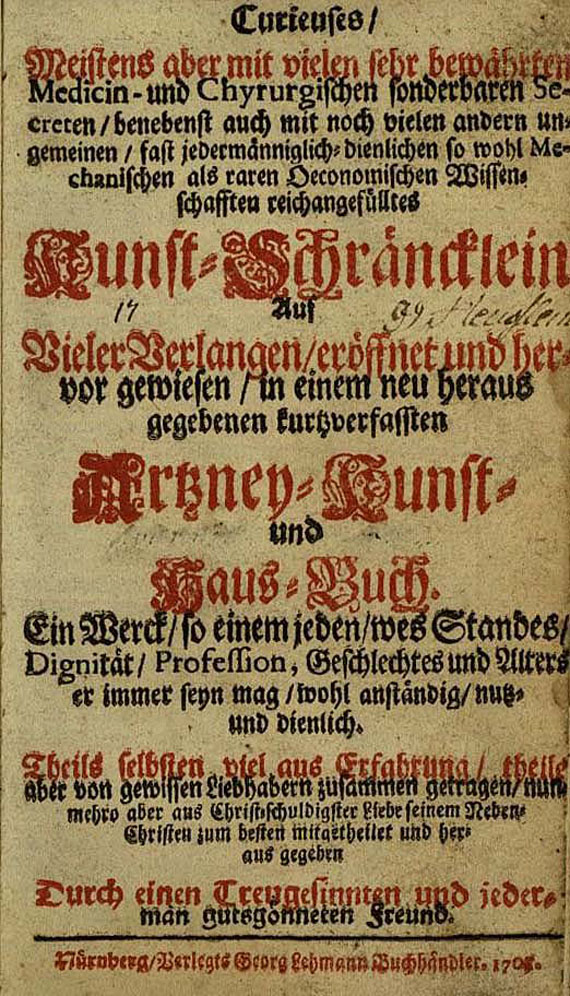 Curieuses /
Meistens aber mit vielen sehr bewährten
Medicin- und Chyrurgischen sonderbaren Se-
creten / benebenst auch mit noch vielen andern un-
gemeinen / fast jedermänniglich-dienlichen so wohl Me-
chanischen als raren Oeconomischen Wissen-
schafften reichangefülltes
Kunst-Schräncklein
17
Auf
Vieler Verlangen / eröffnet und her-
vor gewiesen / in einem neu heraus
gegebenen kurtzverfassten
Artzney-Kunst-
und
Haus-Buch.
Ein Werck / so einem jeden / wes Standes /
Dignität / Profession, Geschlechtes und Alters
er immer seyn mag / wohl anständig / nutz-
und dienlich.
Theils selbsten viel aus Erfahrung / theils
aber von gewissen Liebhabern zusammen getragen / nun-
mehro aber aus Christ-schuldigster Liebe seinem Neben-
Christen zum besten mitgetheilet und her-
aus gegeben
Durch einen Treugesinnten und jeder-
man gutsgönneten Freund.
Nürnberg / Verlegts Georg Lehmann Buchhändler.